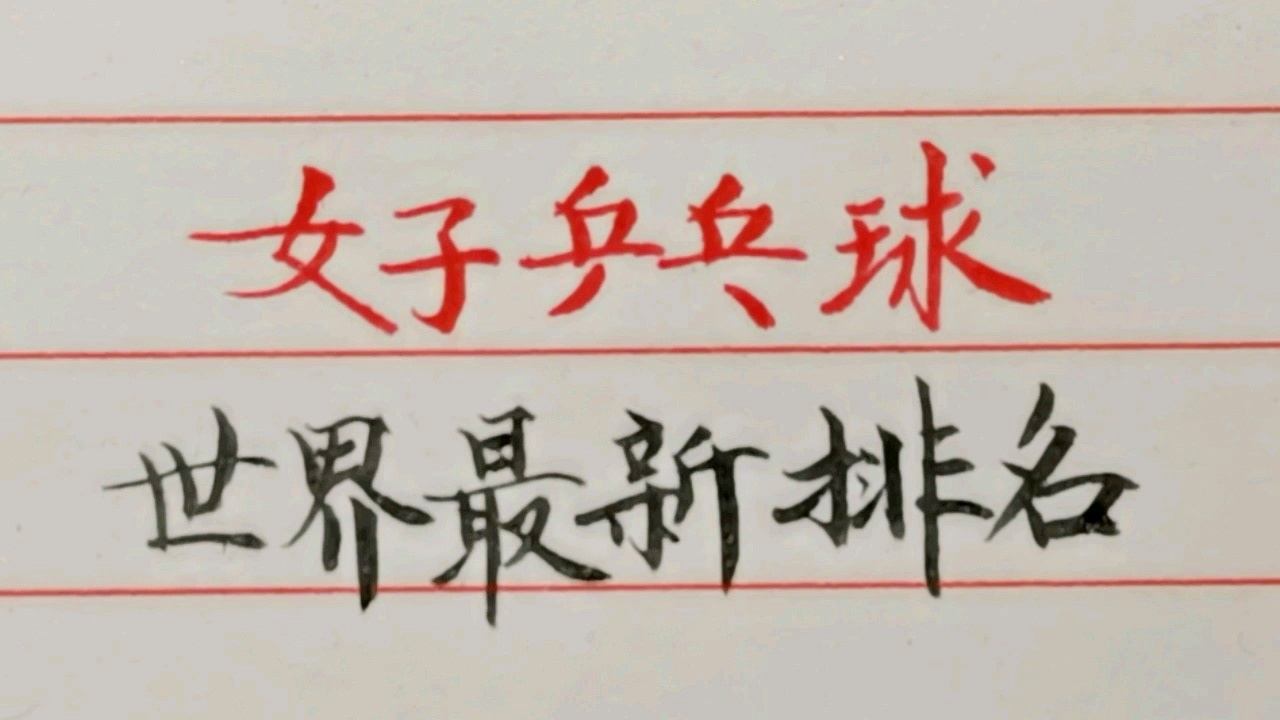 女子乒乓球
世界最新排名